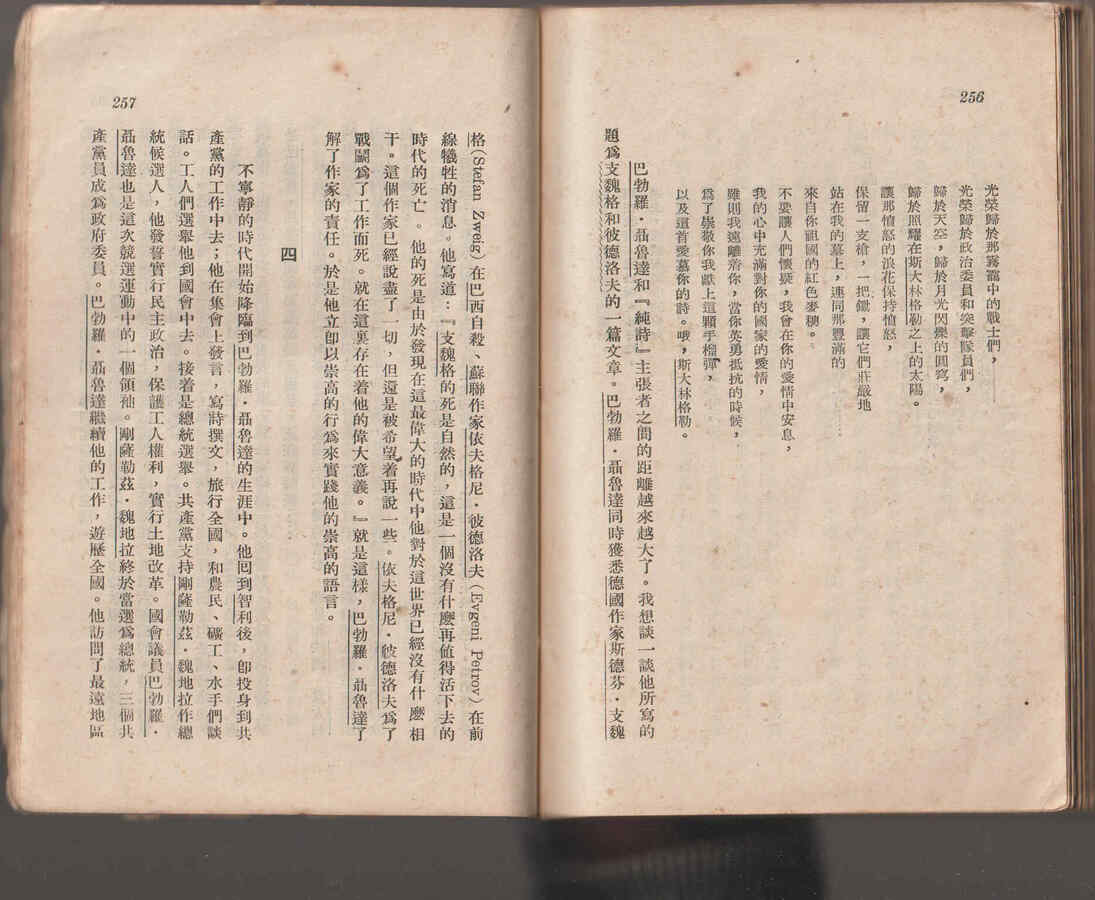 256
光榮歸於那霧靄中的戰士們，
光榮歸於政治委員和突擊隊員們，
歸於天空，歸於月光閃爍的圓穹，
歸於照耀在斯大林格勒之上的太陽。
讓那憤怒的浪花保持憤怒，
保留一支槍，一把鐵，讓它們莊嚴地
站在我的墓上，連同那豐滿的
來自你祖國的紅色麥穗。
不要讓人們懷疑，我會在你的愛情中安息，
我的心中充滿對你的國家的愛情，
雖則我遠離着你，當你英勇抵抗的時候，
爲了崇敬你我獻上這顆手榴彈，
以及這首愛慕你的詩。哦，斯大林格勒。
巴勃羅·聶魯達和『純詩』主張者之間的距離越來越大了。我想談一談他所寫的
題爲支魏格和彼德洛夫的一篇文章。巴勃羅·聶魯達同時獲悉德國作家斯德芬·支魏
257
格（Stefan Zweig）在巴西自殺、蘇聯作家依夫格尼·彼德洛夫（Evgeni Petrov）在前
線犧牲的消息。他寫道：『支魏格的死是自然的，這是一個沒有什麼再值得活下去的
時代的死亡。他的死是由於發現在這最偉大的時代中他對於這世界已經沒有什麼相
干。這個作家已經說盡了一切，但還是被希望着再說一些。依夫格尼·彼德洛夫爲了
戰鬬爲了工作而死。就在這裏存在着他的偉大意義。』就是這樣，巴勃羅·聶魯達了
解了作家的責任。於是他立卽以崇高的行爲來實踐他的崇高的語言。
四
不寧靜的時代開始降臨到巴勃羅·聶魯達的生涯中。他回到智利後，卽投身到共
產黨的工作中去；他在集會上發言，寫詩撰文，旅行全國，和農民、礦工、水手們談
話。工人們選舉他到國會中去。接着是總統選舉。共產黨支持剛薩勒茲·魏地拉作總
統候選人，他發誓實行民主政治，保護工人權利，實行土地改革。國會議員巴勃羅·
聶魯達也是這次競選運動中的一個領袖。剛薩勒茲·魏地拉終於當選爲總統，三個共
產黨員成爲政府委員。巴勃羅·聶魯達繼續他的工作，遊歷全國。他訪問了最遠地區